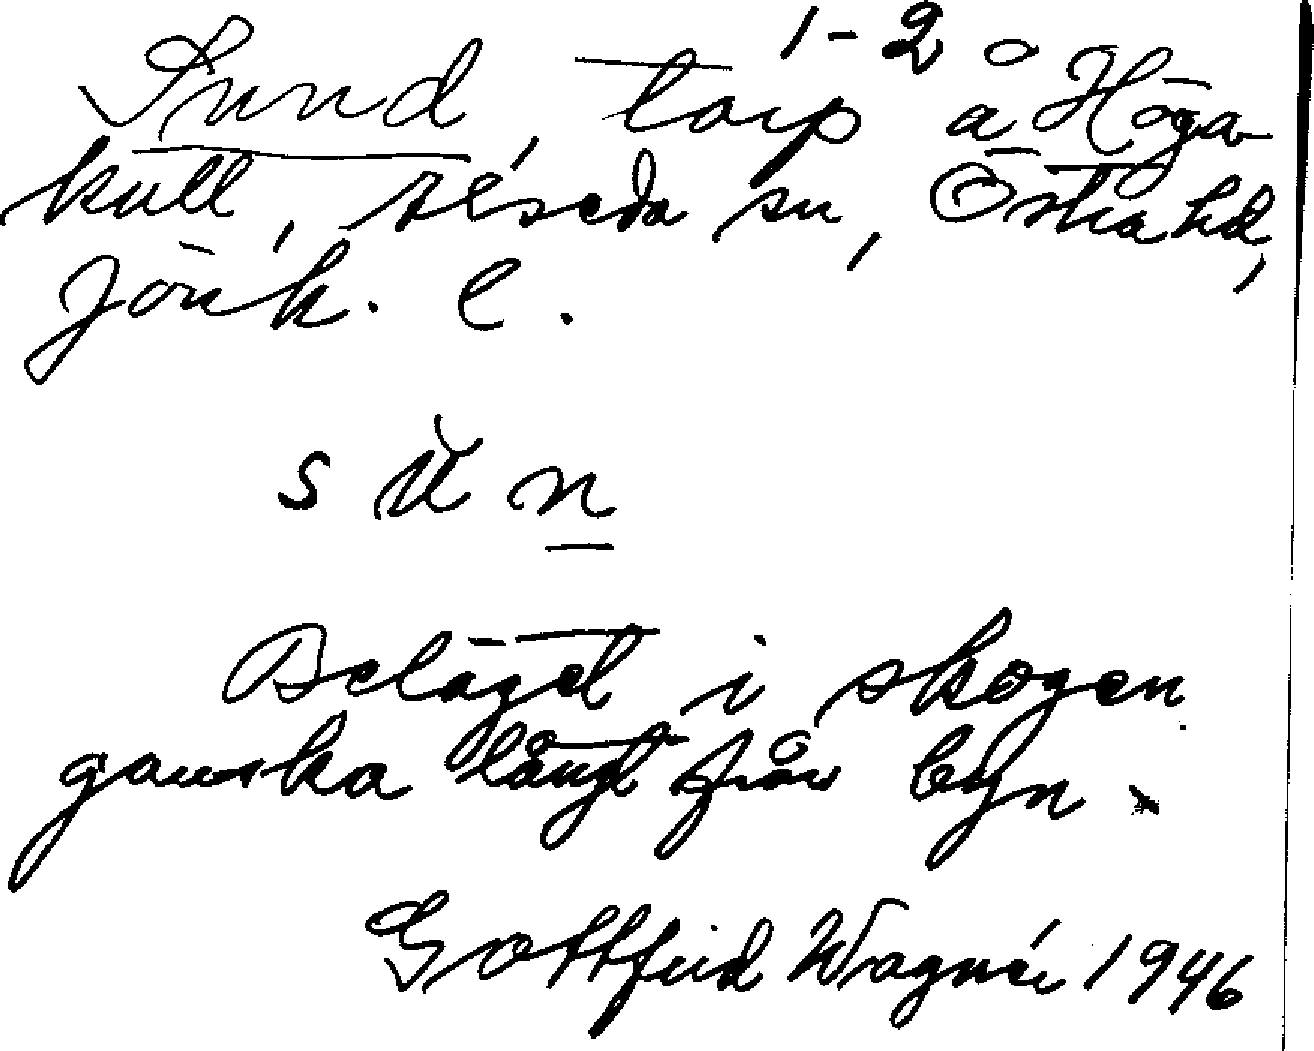 1-2
Sund, torp å Höga-
kull, Séseda sn, Östra hd,
Jönk. l.
s ŭ n
Beläget i skogen
ganska långt från byn.
Gottfrid Wagnér 1946